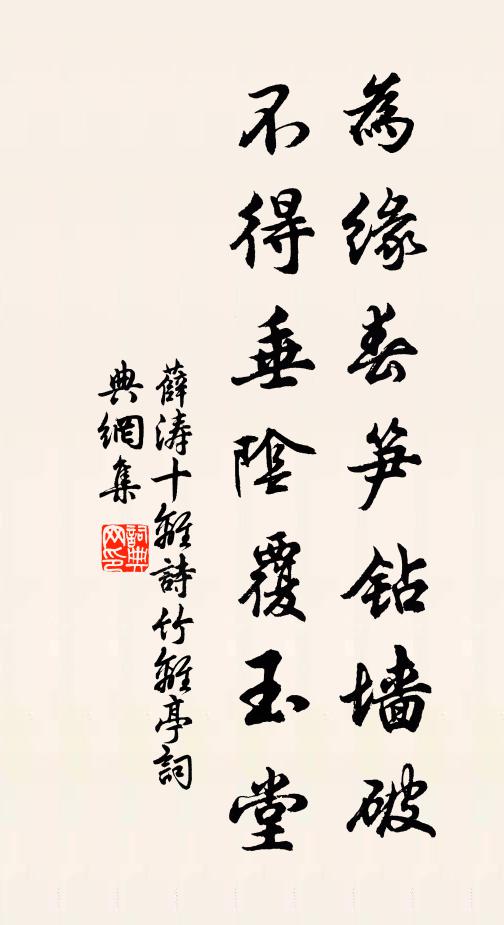 為緣春笋鉆墻破
不得垂陰覆玉堂
薛濤十離詩竹離亭詞
典網集
詞典网印